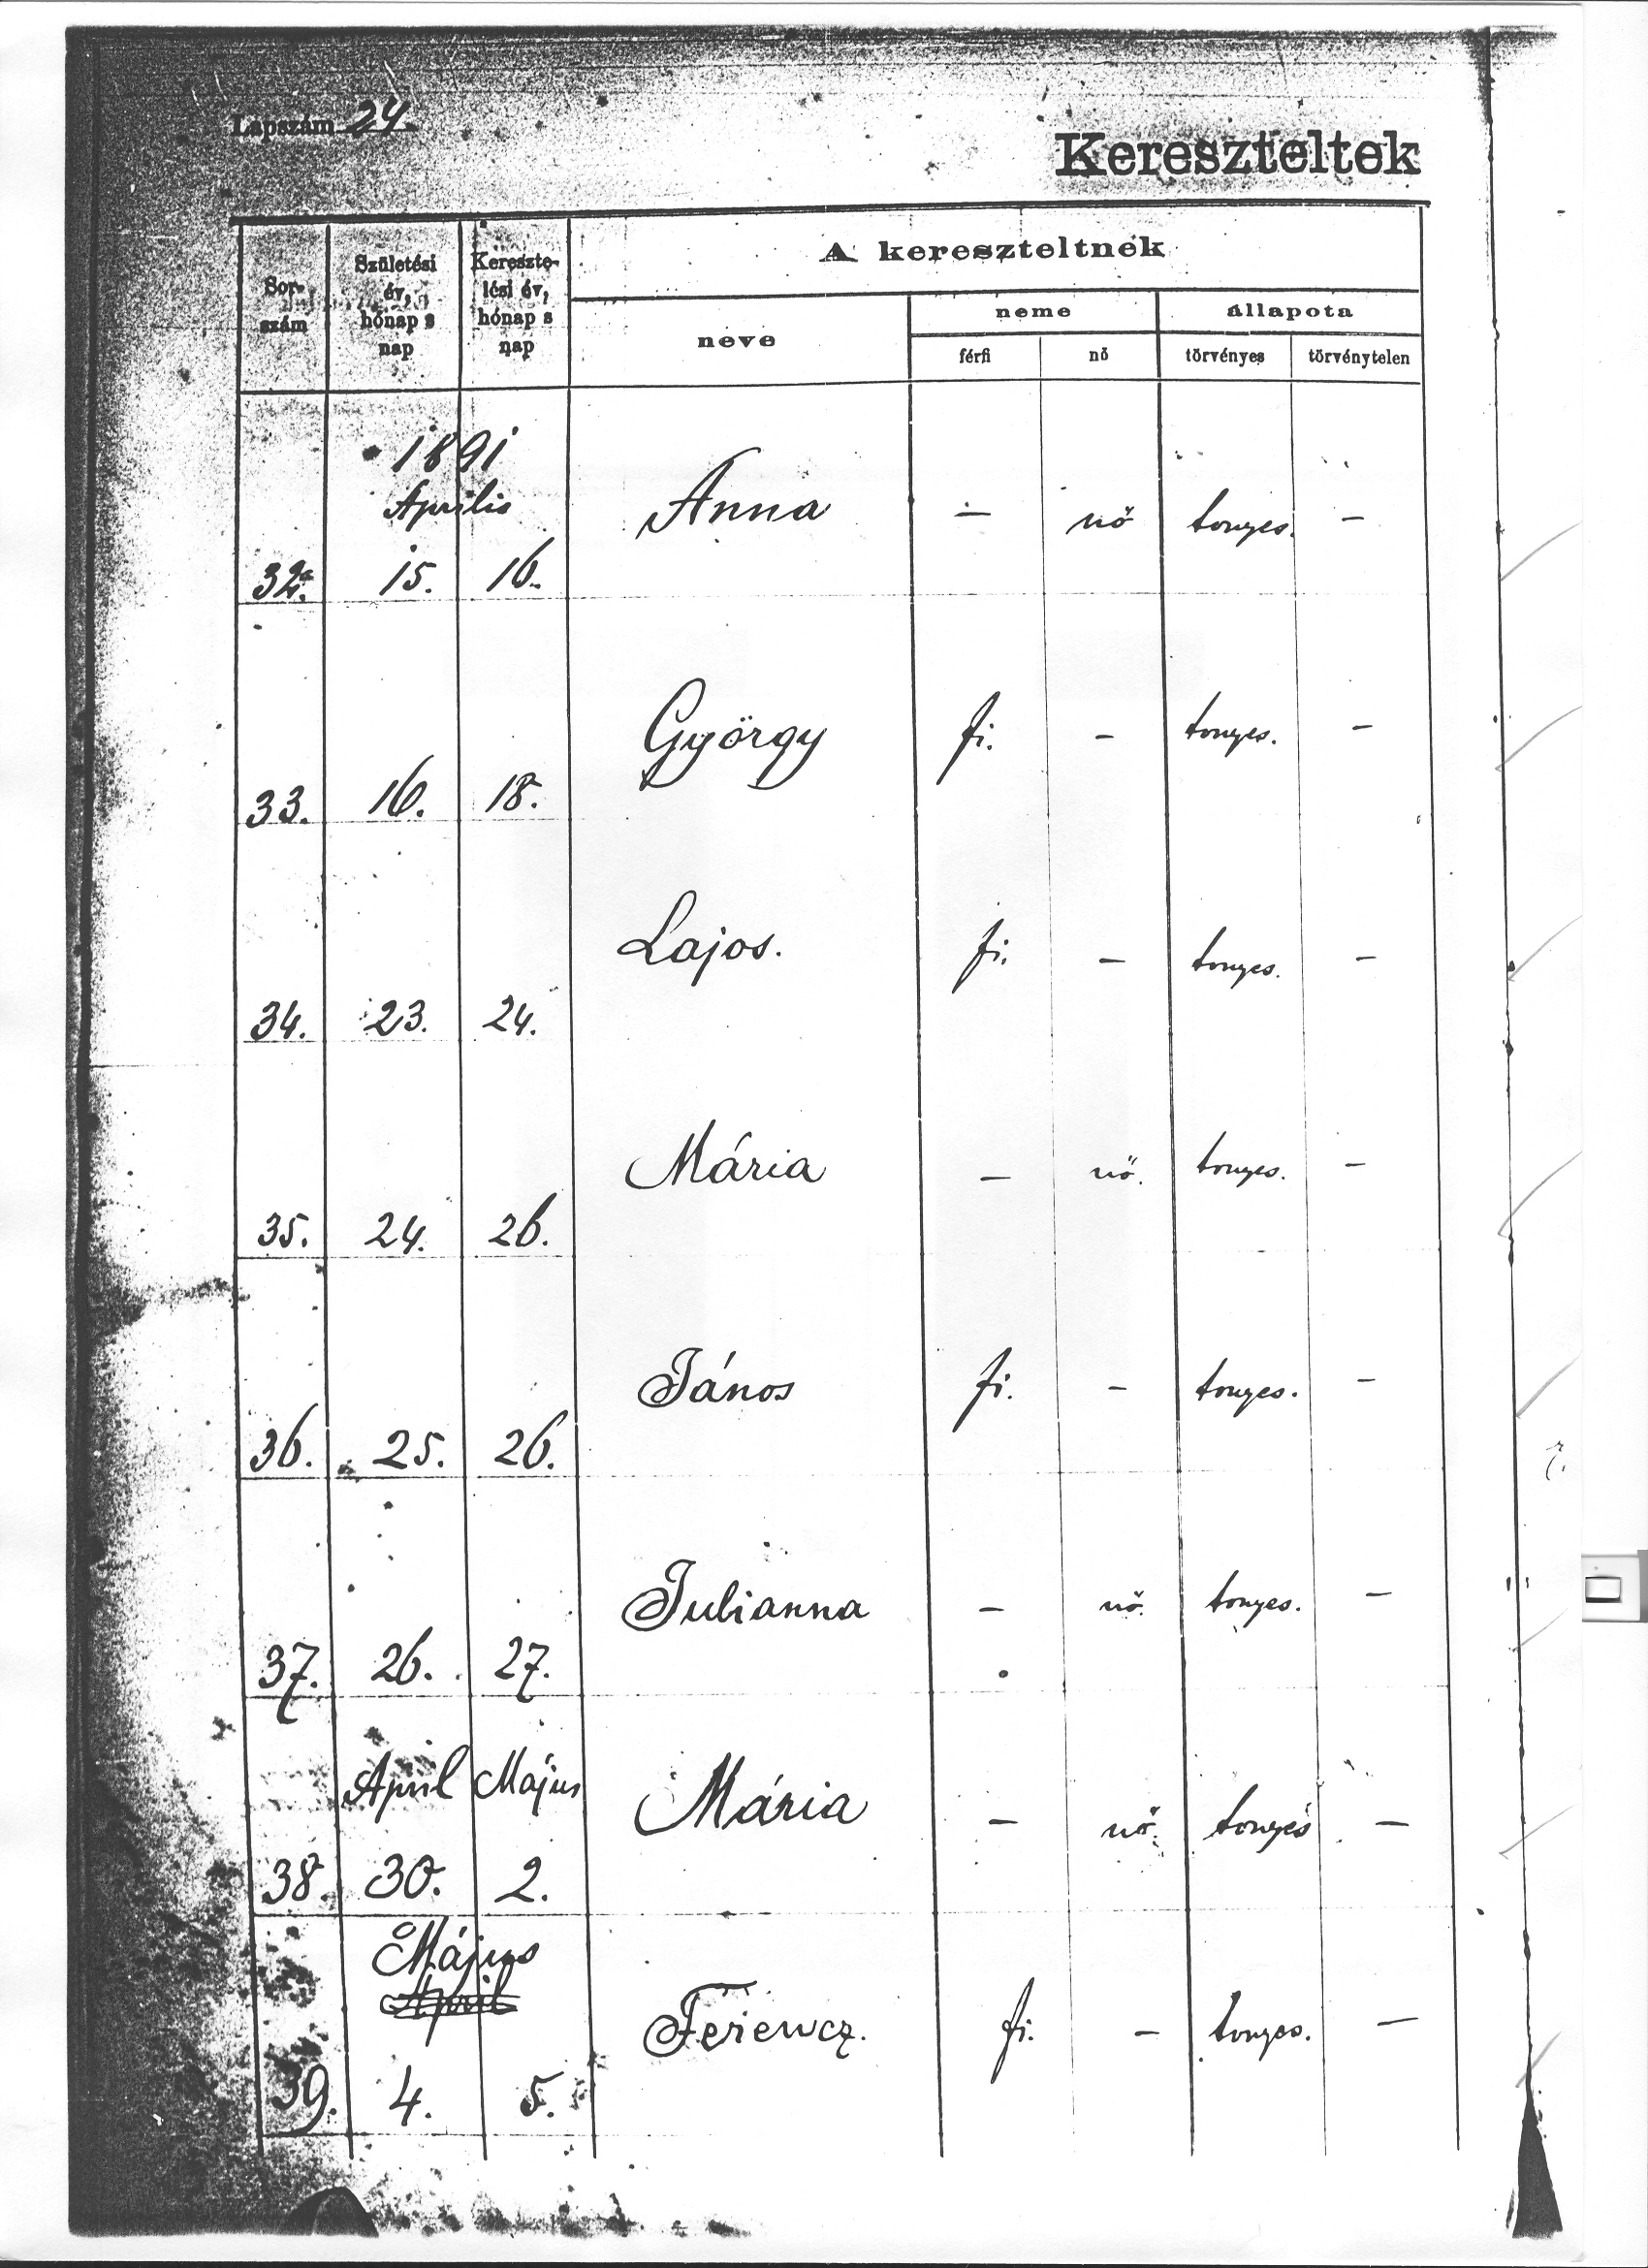 Lapszám 24.
Kereszteltek
Sor-
szám
Születési
év,
hónap s
nap
Kereszte-
lési év,
hónap s
nap
A kereszteltnek
neve
neme
állapota
férfi
nő
törvényes
törvénytelen
1891
Április
32. 15. 16. Anna — nő tonyes. —
33. 16. 18. György fi. — tonyes. —
34. 23. 24. Lajos. fi. — tonyes. —
35. 24. 26. Mária — nő. tonyes. —
36. 25. 26. János fi. — tonyes. —
37. 26. 27. Julianna — nő. tonyes. —
April Május
38. 30. 2. Mária — nő. tonyes —
Május
April
39. 4. 5. Ferencz. fi. — tonyes. —